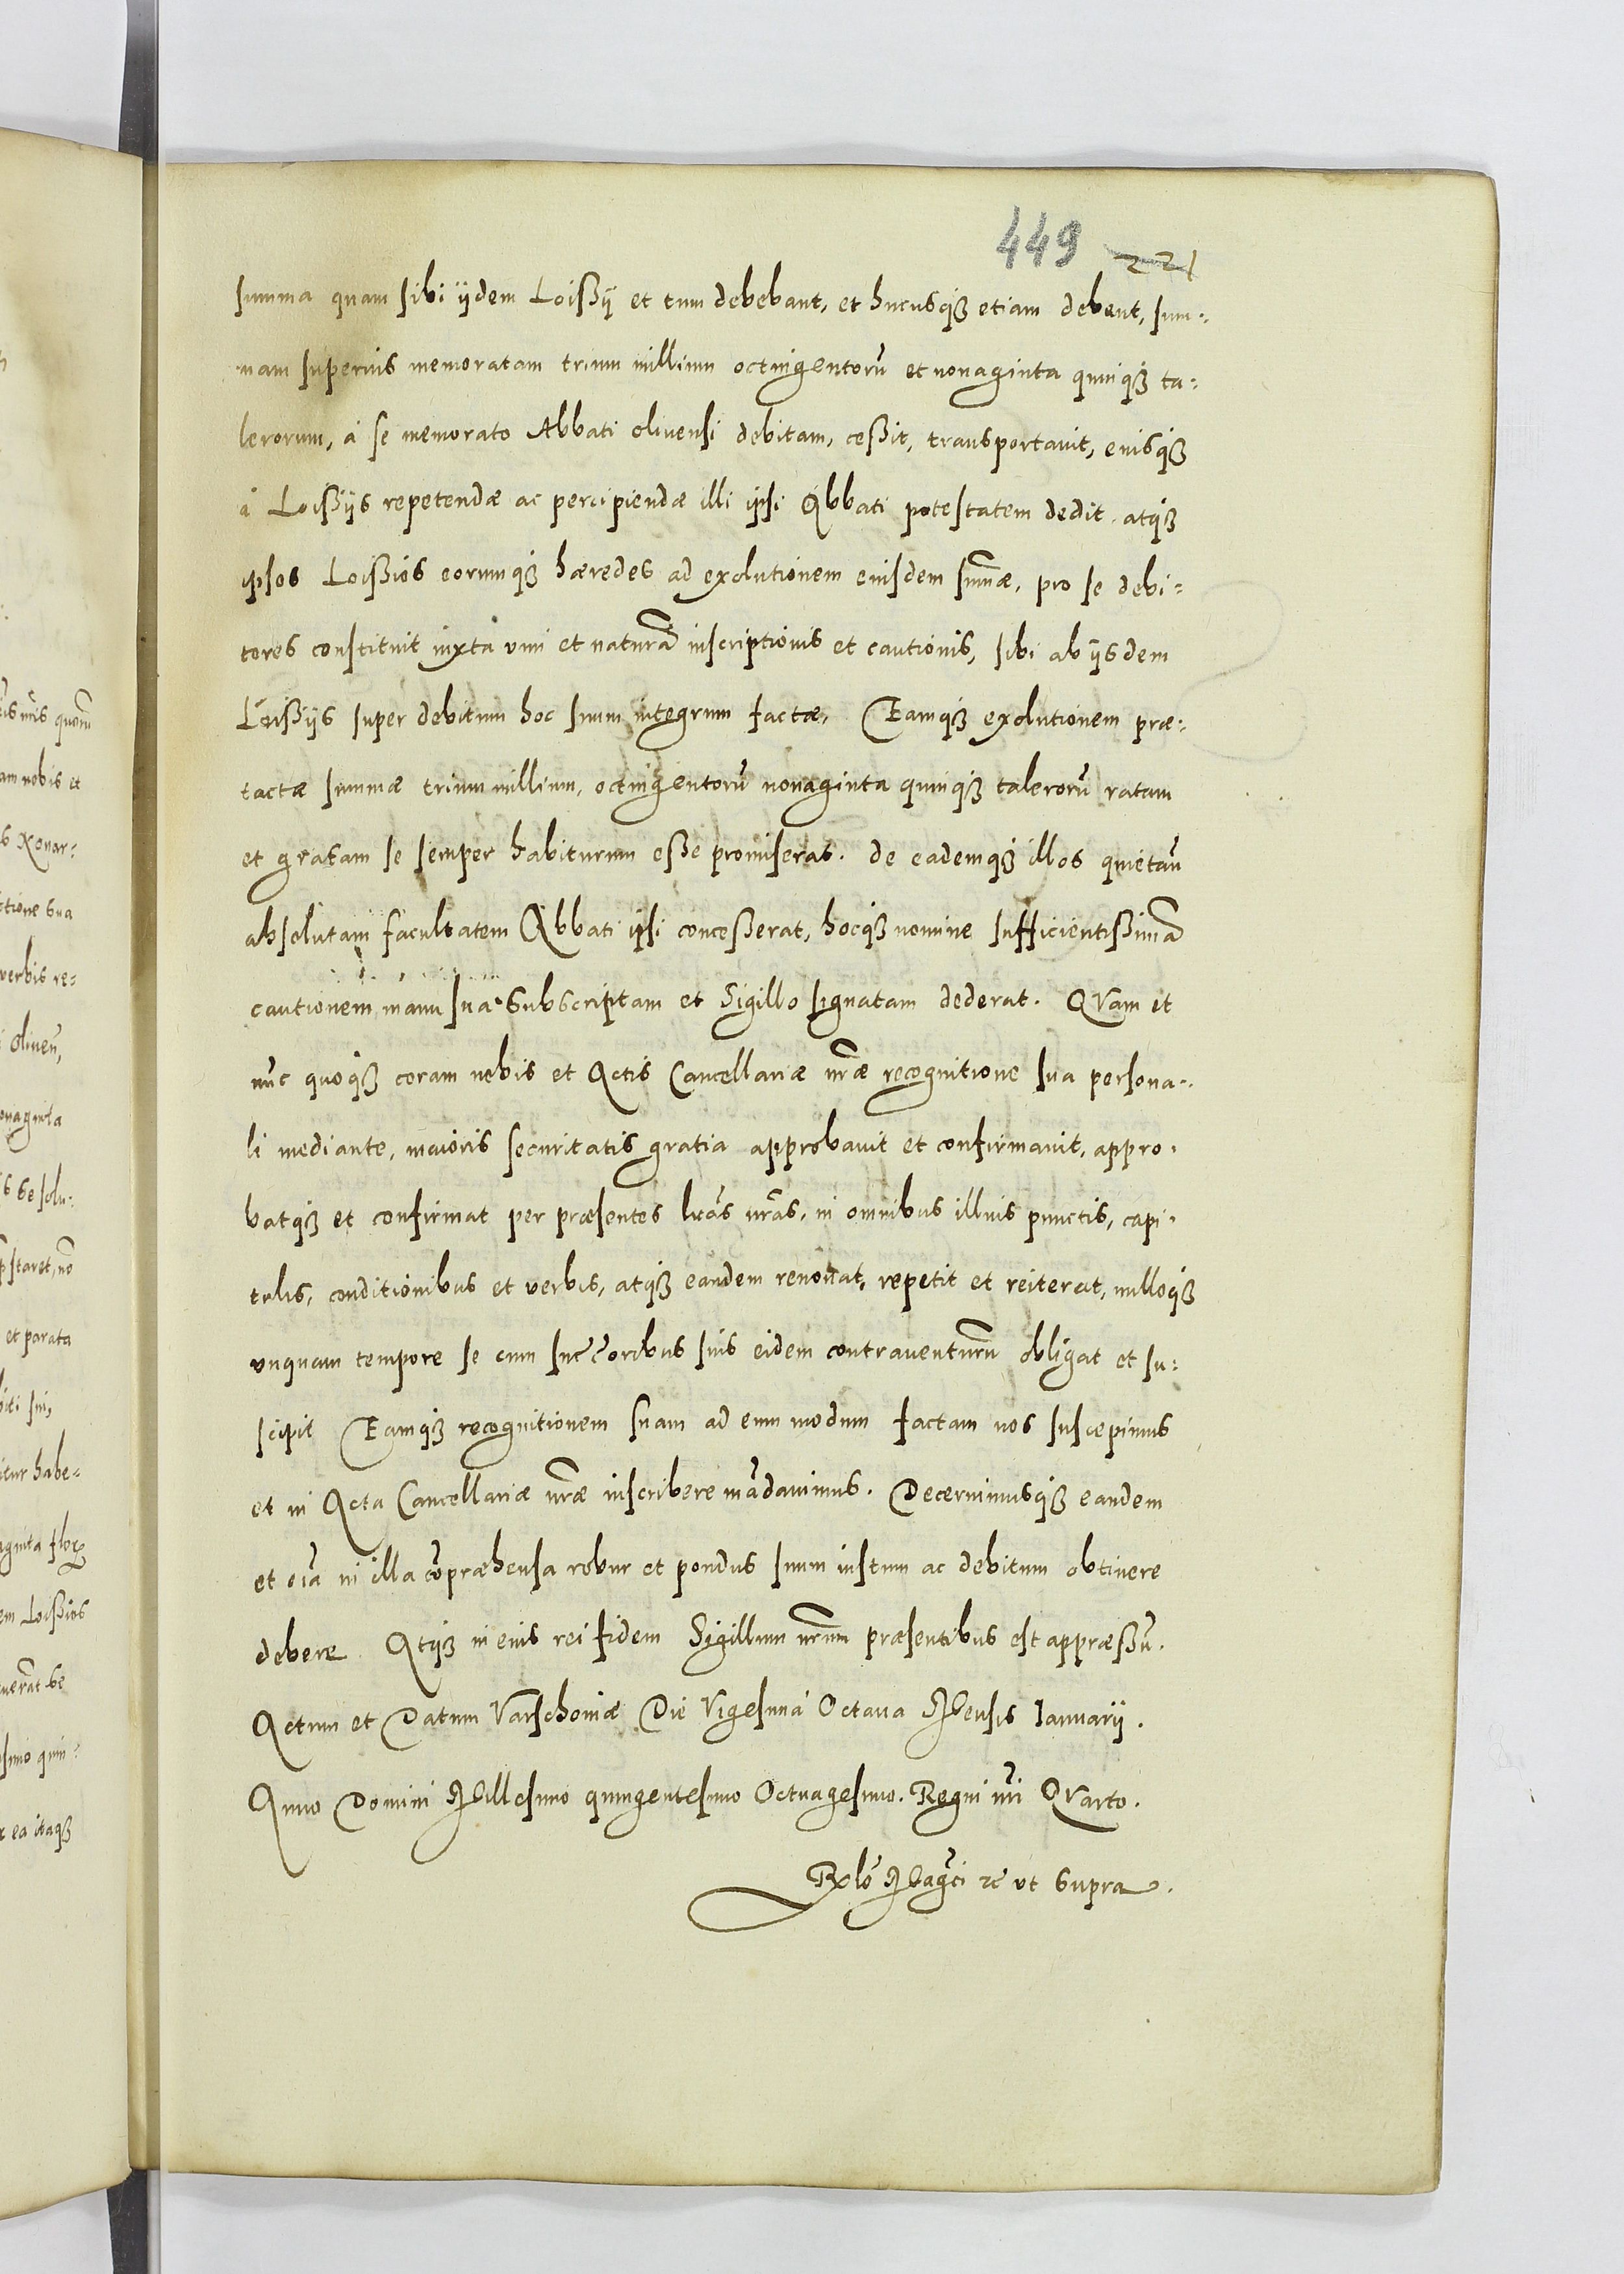 449 221
summa quam sibi ijdem Loißij et tum debebant, et hucusq3 etiam debent, sum-
mam superius memoratam trium millium octingentorū et nonaginta quinq3 ta-
lerorum, à se memorato Abbati oliuensi debitam, ceßit, transportauit, eiusq3
à Loißijs repetendæ ac percipiendæ illi ipsi Abbati potestatem dedit. atq3
ipsos Loißios eorumq3 hæredes ad exolutionem eiusdem sum̄æ, pro se debi-
tores constituit iuxta uim et naturā inscriptionis et cautionis, sibi ab ijsdem
Loißijs super debitum hoc suum integrum factæ, Eamq3 exolutionem præ-
tactæ summæ trium millium, octingentorū nonaginta quinq3 talerorū ratam
et gratam se semper habiturum eße promiserat. de eademq3 illos quietan̄
absolutam facultatem Abbati ipsi conceßerat, hocq3 nomine sufficientißimā
cautionem manu sua subscriptam et Sigillo signatam dederat. QVam et
nūc quoq3 coram nobis et Actis Cancellariæ nr̄æ recognitione sua persona-
li mediante, maioris securitatis gratia approbauit et confirmauit, appro-
batq3 et confirmat per præsentes lr̄as nr̄as, in omnibus illius punctis, capi-
tulis, conditionibus et verbis, atq3 eandem renouat, repetit et reiterat, nulloq3
vnquam tempore se cum succ̄oribus suis eidem contrauenturum obligat et su-
scipit Eamq3 recognitionem suam ad eum modum factam nos suscepimus
et in Acta Cancellariæ nr̄æ inscribere mādauimus. Decernimusq3 eandem
et oīa in illa cōpræhensa robur et pondus suum iustum ac debitum obtinere
debere Atq3 in eius rei fidem Sigillum nr̄um præsentibus est appræßū.
Actum et Datum Varschouiæ Die Vigesima Octaua Mensis Ianuarij.
Anno Domini Millesimo quingentesimo Octuagesimo. Regni nr̄i QVarto.
Rxlō Mag̃ci ꝛc̄ vt supra.